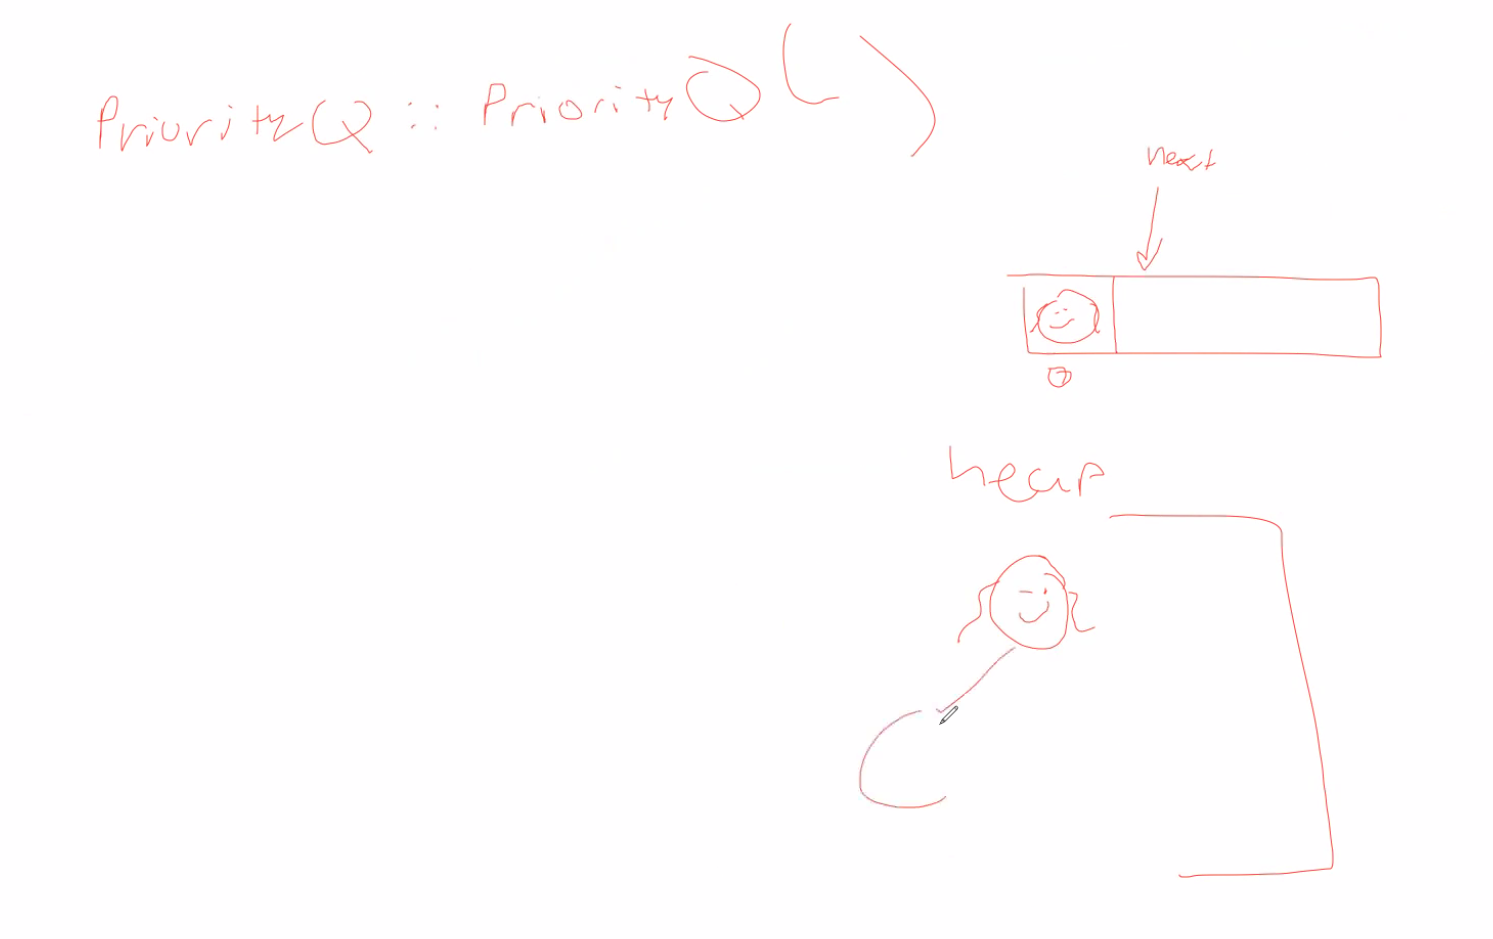 PriorityQ :: PriorityQ ( )
next
0
heap